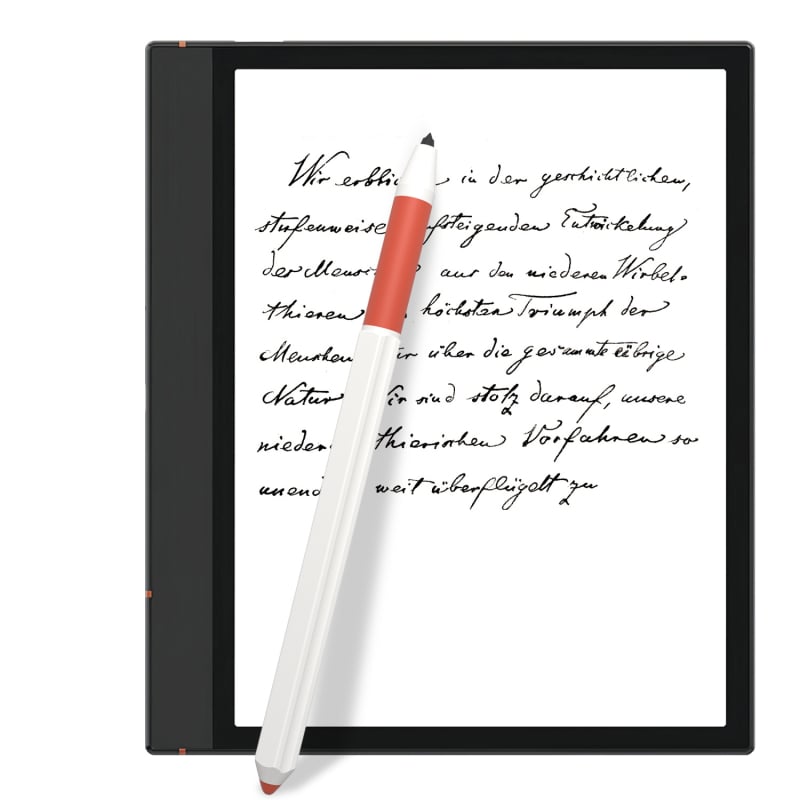 Wir in der geschichtlichen,
stufenweise Entwickelung
der aus den niederen Wirbel-
thieren höchsten Triumph der
über die gesammte übrige
Natur sind stolz darauf, unsere
thierischen Vorfahren so
weit überflügelt zu